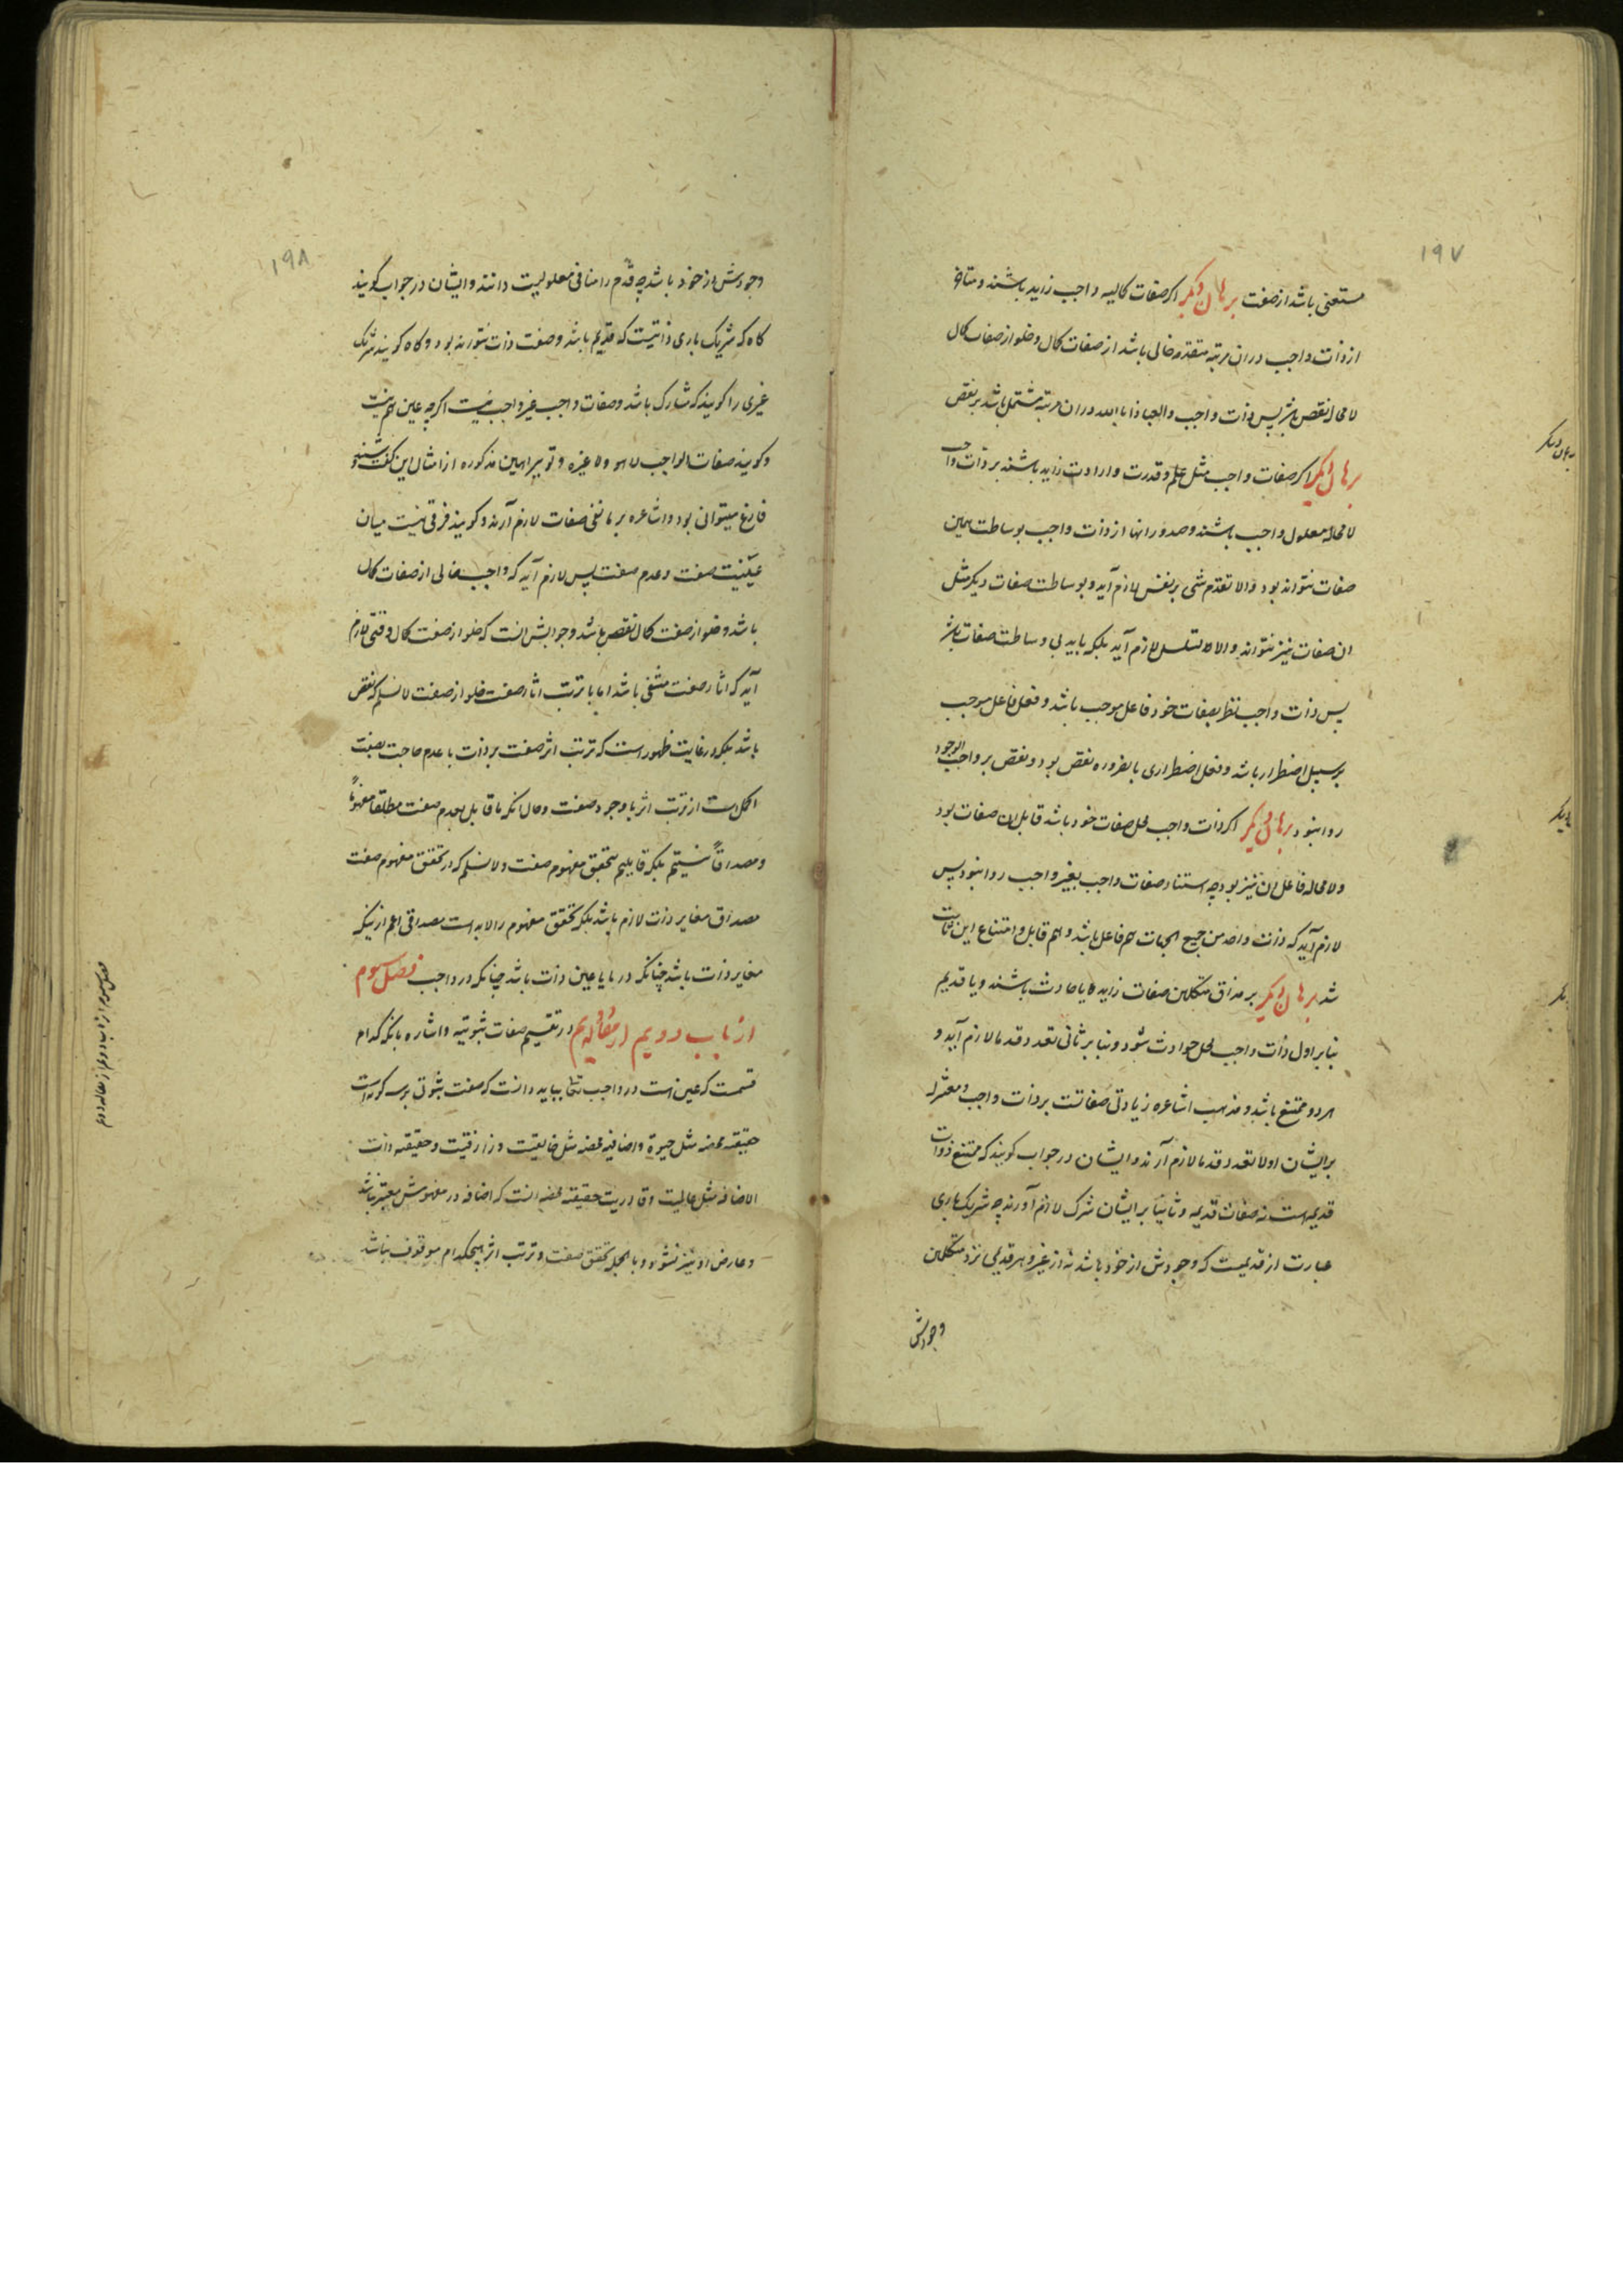 ۱۹۷
مستغنی باشد از صفت برهان دیگر اکر صفات کمالیه واجب زاید باشند و متاخر
از ذات واجب در ان مرتبه متقدمه خالی باشد از صفات کمال و خلو از صفات کمال
لا محاله نقص باشد پس ذات واجب والعیاذ بالله در ان مرتبه مشتمل باشد بر نقص
برهان دیگر اکر صفات واجب مثل علم و قدرت و ارادت زاید باشند بر ذات واجب
لا محاله معلول واجب باشند و صدور انها از ذات واجب بوساطت همین
صفات نتواند بود والا تقدم شی بر نفس لازم آید و بوساطت صفات دیکر مثل
ان صفات نیز نتواند والا تسلسل لازم آید بلکه باید بی وساطت صفات باشد
پس ذات واجب نظر بصفات خود فاعل موجب باشد و فعل فاعل موجب
بر سبیل اضطرار باشد و فعل اضطراری بالضروره نقص بود و نقص بر واجب الوجود
روا نبود برهان دیگر اکر ذات واجب محل صفات خود باشد قابل ان صفات بود
ولا محاله فاعل ان نیز بود چه استناد صفات واجب بغیر واجب روا نبود پس
لازم آید که ذات واحد من جمیع الجهات هم فاعل باشد و هم قابل و امتناع این ثابت
شد برهان دیگر بر مذاق متکلمین صفات زایده یا حادث باشند و یا قدیم
بنا بر اول ذات واجب محل حوادث شود و بنا بر ثانی تعدد قدما لازم آید و
هر دو ممتنع باشد و مذهب اشاعره زیادتی صفاتست بر ذات واجب و معتزله
بر ایشان اولا تعدد قدما لازم آرند و ایشان در جواب کویند که ممتنع ذوات
قدیمه است نه صفات قدیمه و ثانیا بر ایشان شرک لازم آورند چه شریک باری
عبارت از قدیمیست که وجودش از خود باشد نه از غیر و هر قدیمی نزد متکلمین
وجودش
برهان دیگر
دیگر
۱۹۸
وجودش از خود باشد چه قدم را منافی معلولیت دانند و ایشان در جواب کویند
کاه که شریک باری ذاتیست که قدیم باشد و صفت ذات نتواند بود و کاه کویند شریک
غیری را کویند که مشارک باشد و صفات واجب غیر واجب نیست اکرچه عین هم نیست
و کویند صفات الواجب لا هو ولا غیره و تو ببراهین مذکوره از امثال این کفت و شنید
فارغ میتوانی بود و اشاعره بر ما نفی صفات لازم آرند و کویند فرقی نیست میان
عینیت صفت و عدم صفت پس لازم آید که واجب خالی از صفات کمال
باشد و خلو از صفت کمال نقص باشد و جوابش انست که خلو از صفت کمال وقتی لازم
آید که اثار صفت منتفی باشد اما با ترتب اثار صفت خلو از صفت لا نسلم که نقص
باشد بلکه در غایت ظهور است که ترتب اثر صفت بر ذات با عدم حاجت بصفت
اکمل است از ترتب اثر با وجود صفت و حال انکه ما قابل بعدم صفت مطلقا مفهوماً
و مصداقاً نیستیم بلکه قابلیم بتحقق مفهوم صفت ولا نسلم که در تحقق مفهوم صفت
مصداق مغایر ذات لازم باشد بلکه تحقق مفهوم را لابد است مصداقی اعم از اینکه
مغایر ذات باشد چنانکه در ما یا عین ذات باشد چنانکه در واجب فصل سوم
از باب دویم از مقاله دویم در تقسیم صفات ثبوتیه و اشاره بانکه کدام
قسمت که عین است در واجب تعالی بباید دانست که صفت ثبوتی بر سه کونه است
حقیقیه محضه مثل حیوة و اضافیه محضه مثل خالقیت و رازقیت و حقیقیه ذات
الاضافه مثل عالمیت و قادریت حقیقیه محضه انست که اضافه در مفهومش معتبر نباشد
و عارض او نیز نشود و بالجمله تحقق صفت و ترتب اثر هیچکدام موقوف نباشد
فصل سوم از باب دوم از مقاله دوم